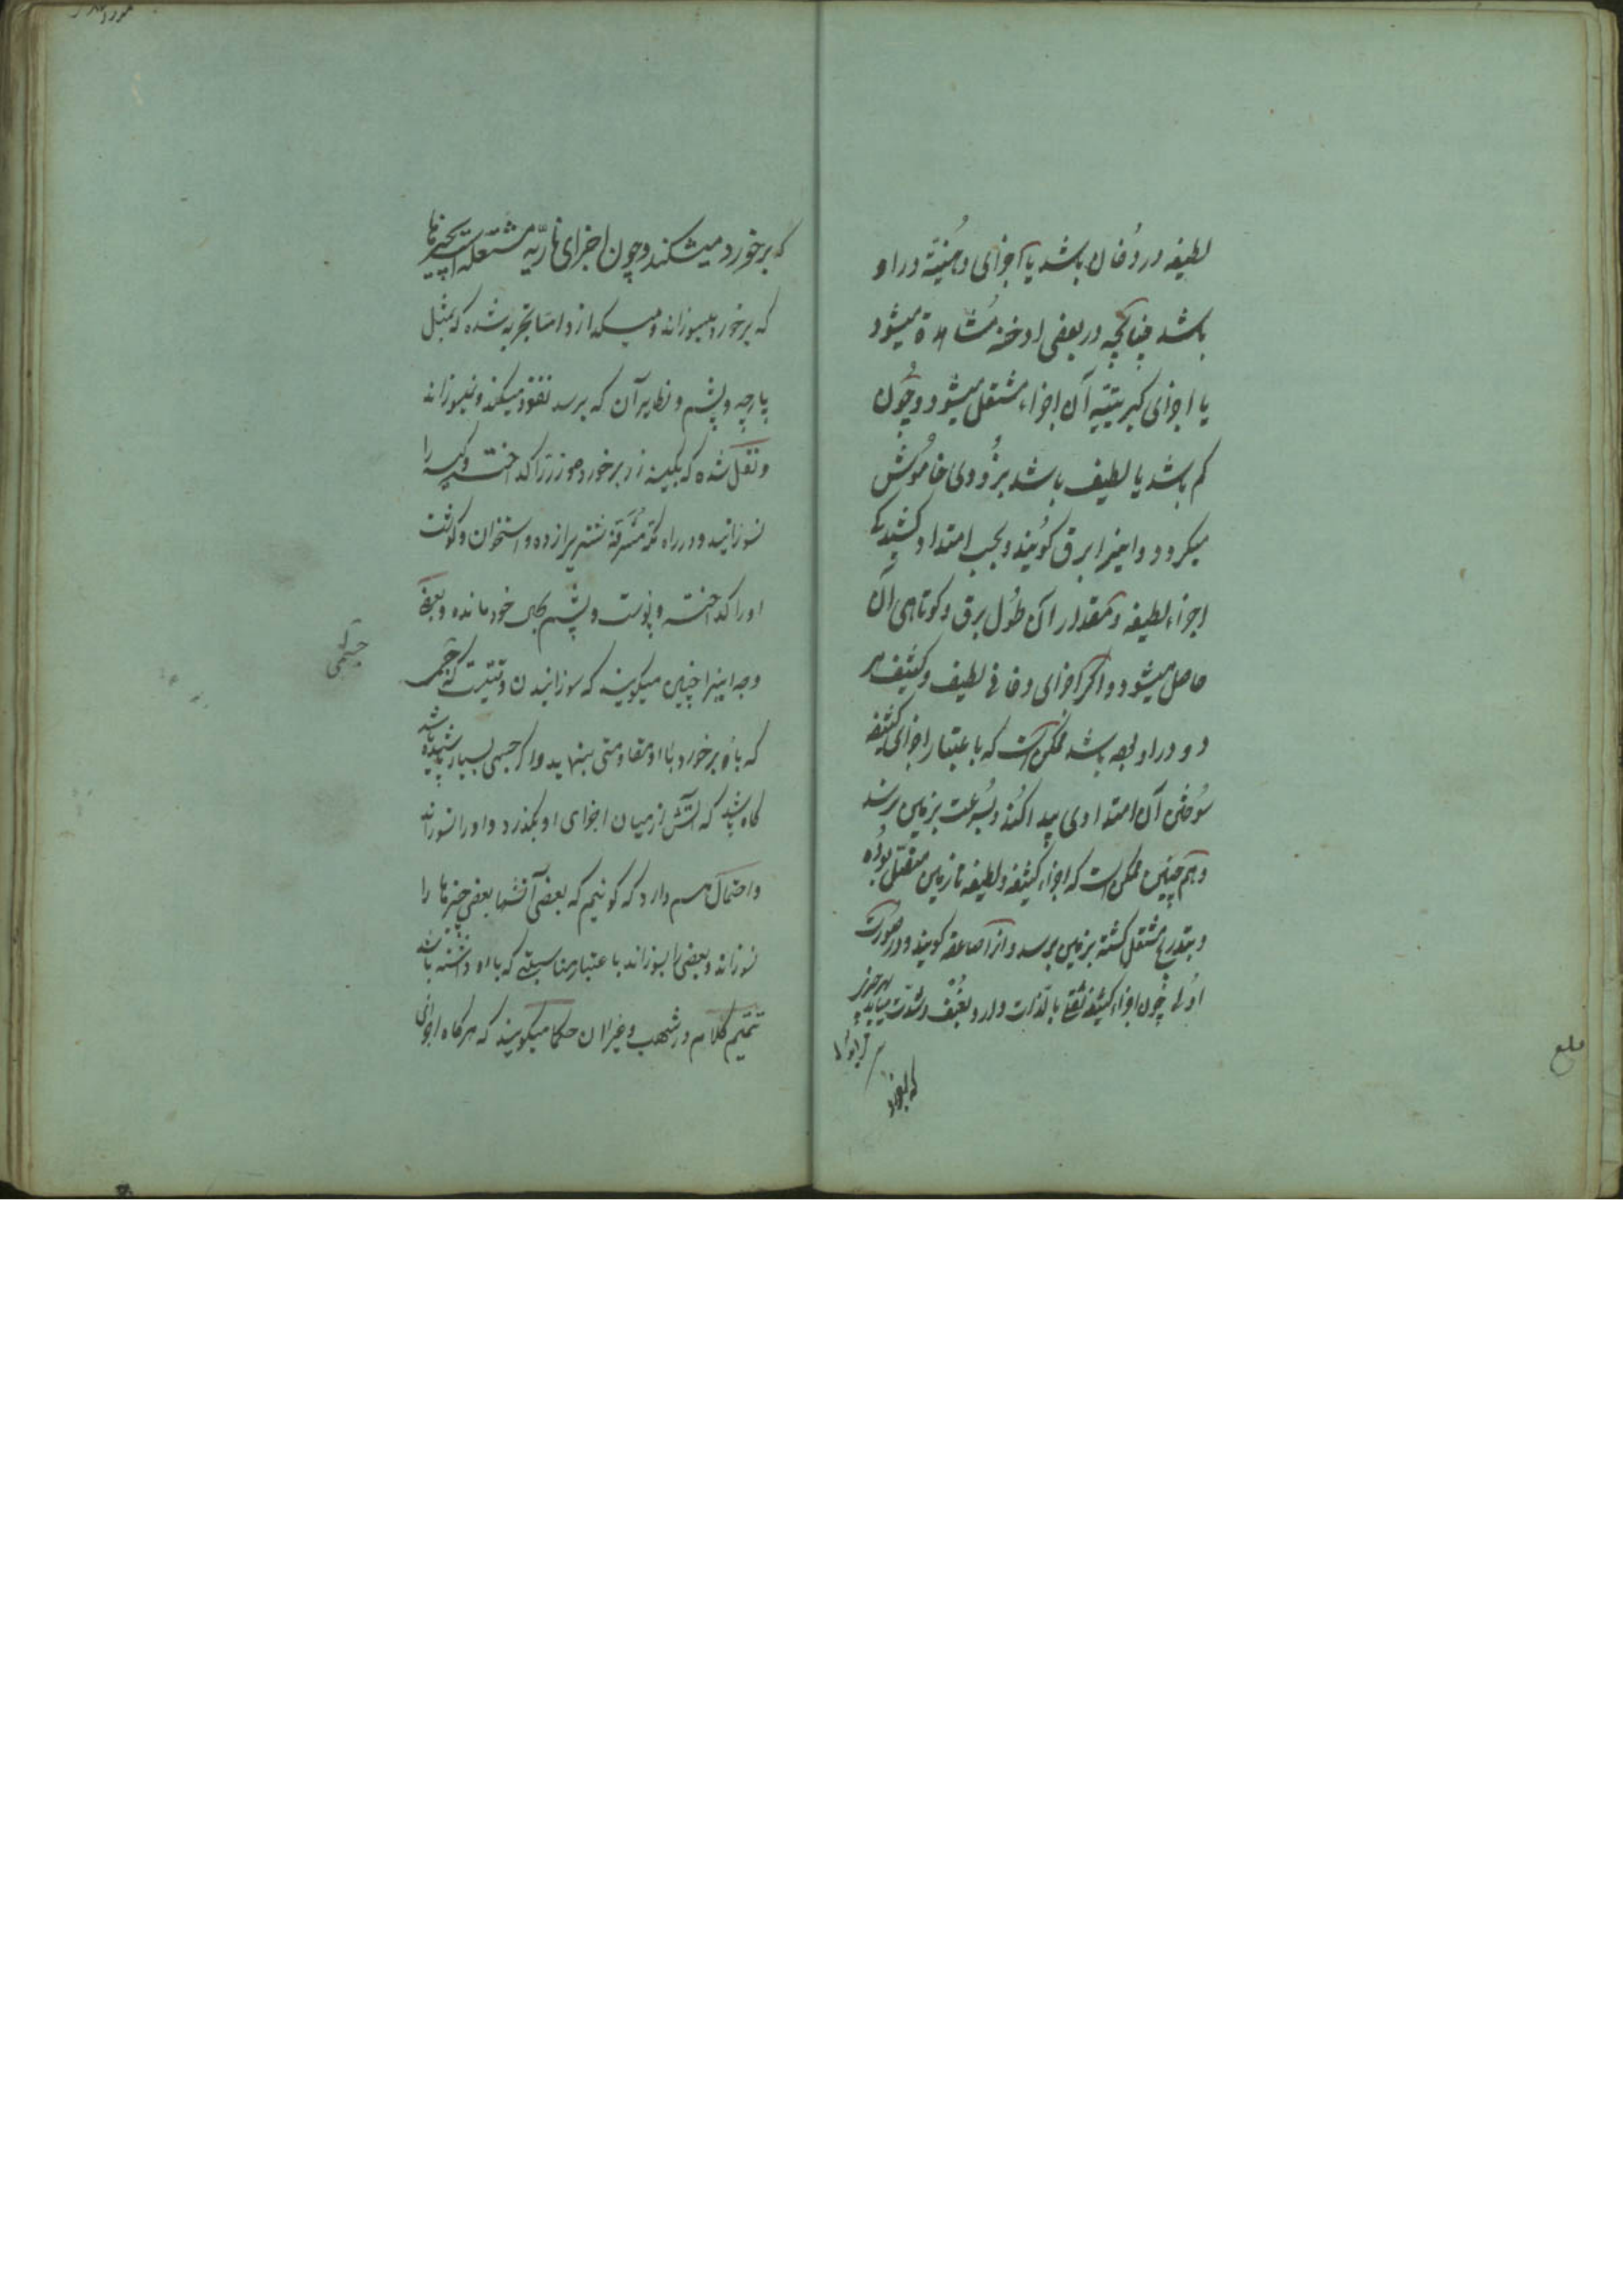 لطیفه در دُخان باشد یا اجزای دُهنیّه در او
باشد چنانچه در بعضی ادخنه مُشاهده میشود
یا اجزای کبریتیّه آن اجزاء مشتعل میشود و چُون
کم باشد یا لطیف باشد بزُودی خامُوش
میکردد و اینرا برق کویند و بحسب امتداد و کشیدکی
اجزاء لطیفه و مقدار آن طُول برق و کوتاهی آن
حاصل میشود و اکر اجزای دخانی لطیف و کثیف هر
دو در او بهم باشد ممکن است که باعتبار اجزای کثیفه
سُوختن آن امتدادی پیدا کند و بسُرعت بزمین برسد
و همچنین ممکن است که اجزاء کثیفه و لطیفه تا زمین متصل بوده
و بتدریج مشتعل کشته بزمین برسد و آنرا صاعقه کویند و در صورت
اولی چُون اجزاء کثیفه ثقلی بالذات دارد بعُنف و شدّت میآید بهر چیز
که برخورد
بلغ
که برخورد میشکند و چون اجزای ناریّه مشتعله است چیزها
که برخورد میسوزاند و میکدازد و امّا تجربه شده که بمثل
پارچه و پشم و نظایر آن که برسد نفوذ میکند و نمیسوزاند
و نقل شده که بکیسه زر برخورد و زر را کداخت و کیسه را
نسوزانید و در راه مکّه مُشرّفه شتریرا زده و استخوان و کوشت
اورا کداخته و پوست و پشم بجای خود مانده و بعضی
وجه اینرا چنین میکویند که سوزانیدن وقتیست که جسمی
که باو برخورد با او مقاومتی بنماید و اکر جسمی بسیار باشد
کاه باشد که آتش از میان اجزای او بکذرد و او را نسوزاند
و احتمال هم دارد که کوئیم که بعضی آتشها بعضی چیزها را
نسوزاند و بعضی را بسوزاند باعتبار مناسبتی که با او داشته باشد
تتمیم کلام در شهب و غیر آن حکما میکویند که هرکاه اجزای